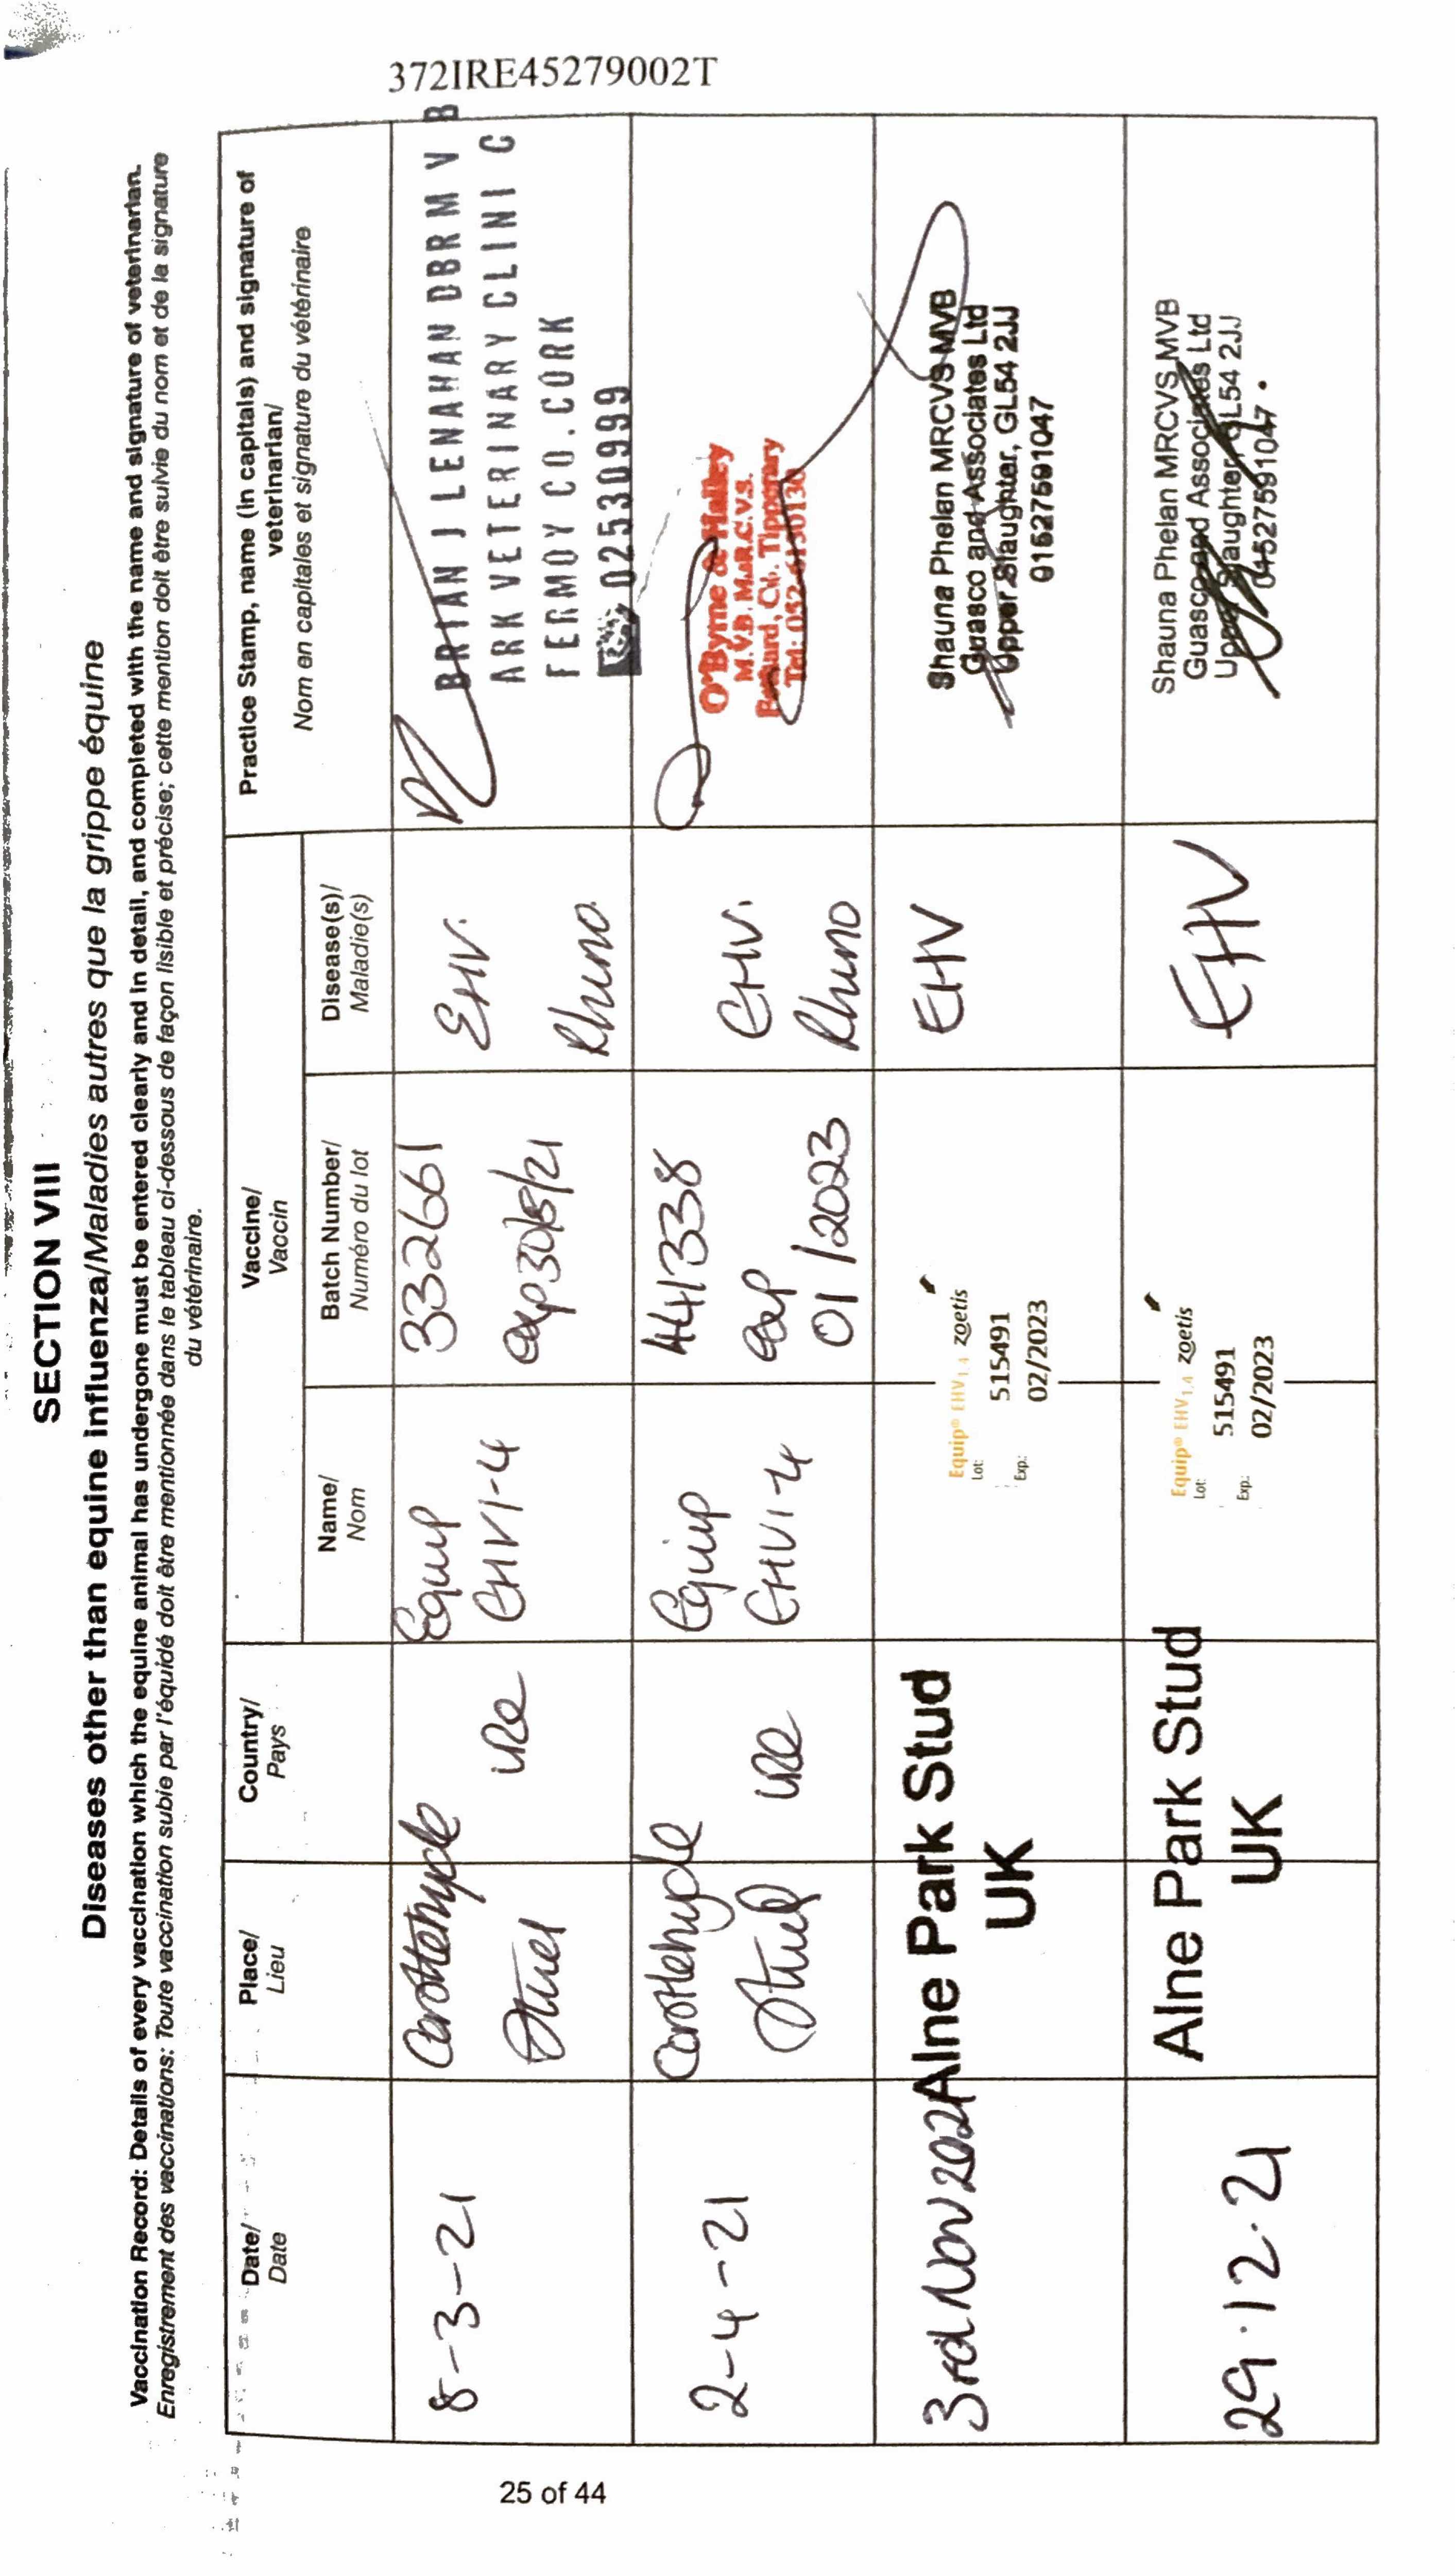 372IRE45279002T
SECTION VIII
Diseases other than equine influenza/Maladies autres que la grippe équine
Vaccination Record: Details of every vaccination which the equine animal has undergone must be entered clearly and in detail, and completed with the name and signature of veterinarian.
Enregistrement des vaccinations: Toute vaccination subie par l'équidé doit être mentionnée dans le tableau ci-dessous de façon lisible et précise; cette mention doit être suivie du nom et de la signature
du vétérinaire.
Date/
Date
Place/
Lieu
Country/
Pays
Vaccine/
Vaccin
Name/
Nom
Batch Number/
Numéro du lot
Disease(s)/
Maladie(s)
Practice Stamp, name (in capitals) and signature of
veterinarian/
Nom en capitales et signature du vétérinaire
8-3-21
Stud
IRE
Equip
EHV1-4
332661
exp 30/5/21
EHV.
Rhino.
BRIAN J LENAHAN DBR M V B
ARK VETERINARY CLINI C
FERMOY CO.CORK
0253099
2-4-21
Stud
IRE
Equip
EHV1-4
441338
exp
01/2023
EHV.
Rhino
O'Byrne & Halley
M.V.B. M.R.C.V.S.
Co. Tipperary
Tel: 052-6130
3rd Nov 2021
Alne Park Stud
UK
Equip® EHV1,4 zoetis
Lot: 515491
Exp.: 02/2023
EHV
Shauna Phelan MRCVS MVB
Guasco and Associates Ltd
Upper Slaughter, GL54 2JJ
01527591047
29.12.21
Alne Park Stud
UK
Equip® EHV1,4 zoetis
Lot: 515491
Exp.: 02/2023
EHV
Shauna Phelan MRCVS MVB
Guasco and Associates Ltd
Upper Slaughter GL54 2JJ
01527591047
25 of 44